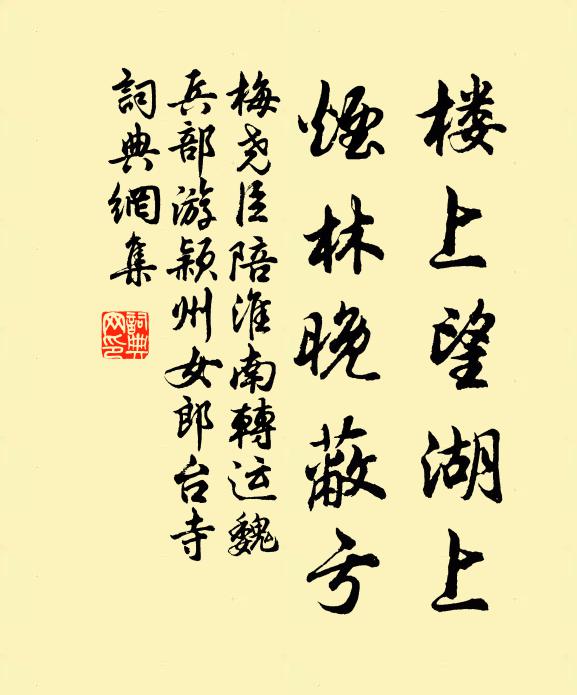 楼上望湖上
煙林晚蔽亏
梅尧臣陪淮南轉运魏
兵部游颍州女郎台寺
詞典網集
詞典
网印